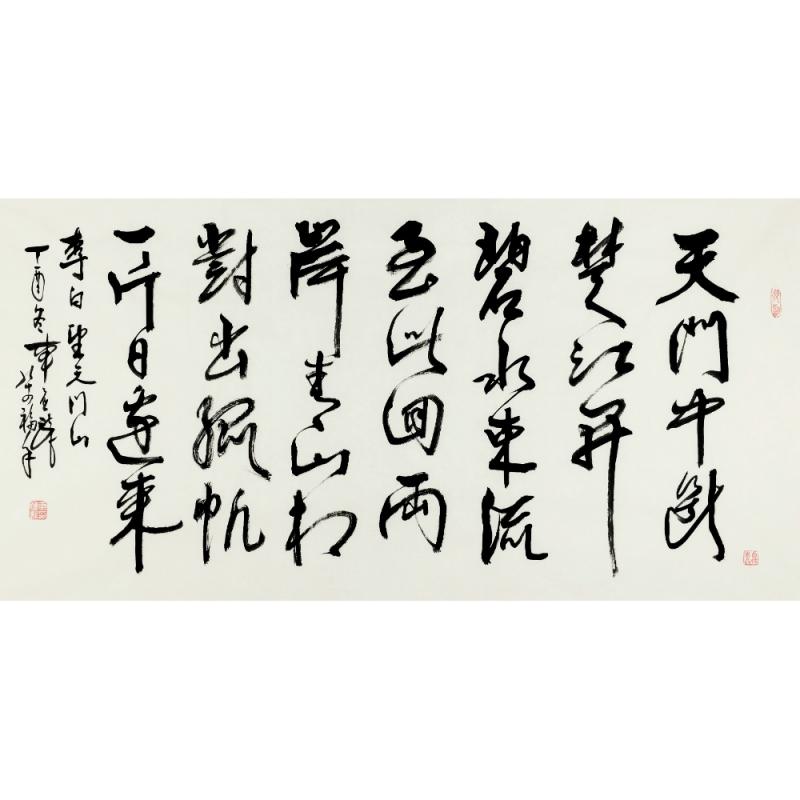 天門中斷
楚江開
碧水東流
至此回兩
岸青山相
對出孤帆
一片日邊來
李白望天門山
丁酉冬